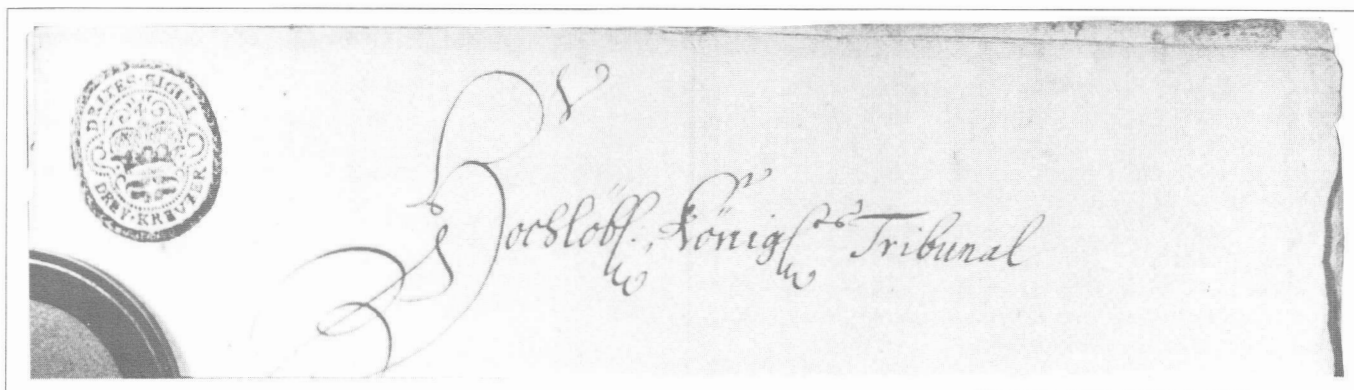 DRITES·SIGIL
DREY·KREVZER
Hochlöbl. Königl.es Tribunal